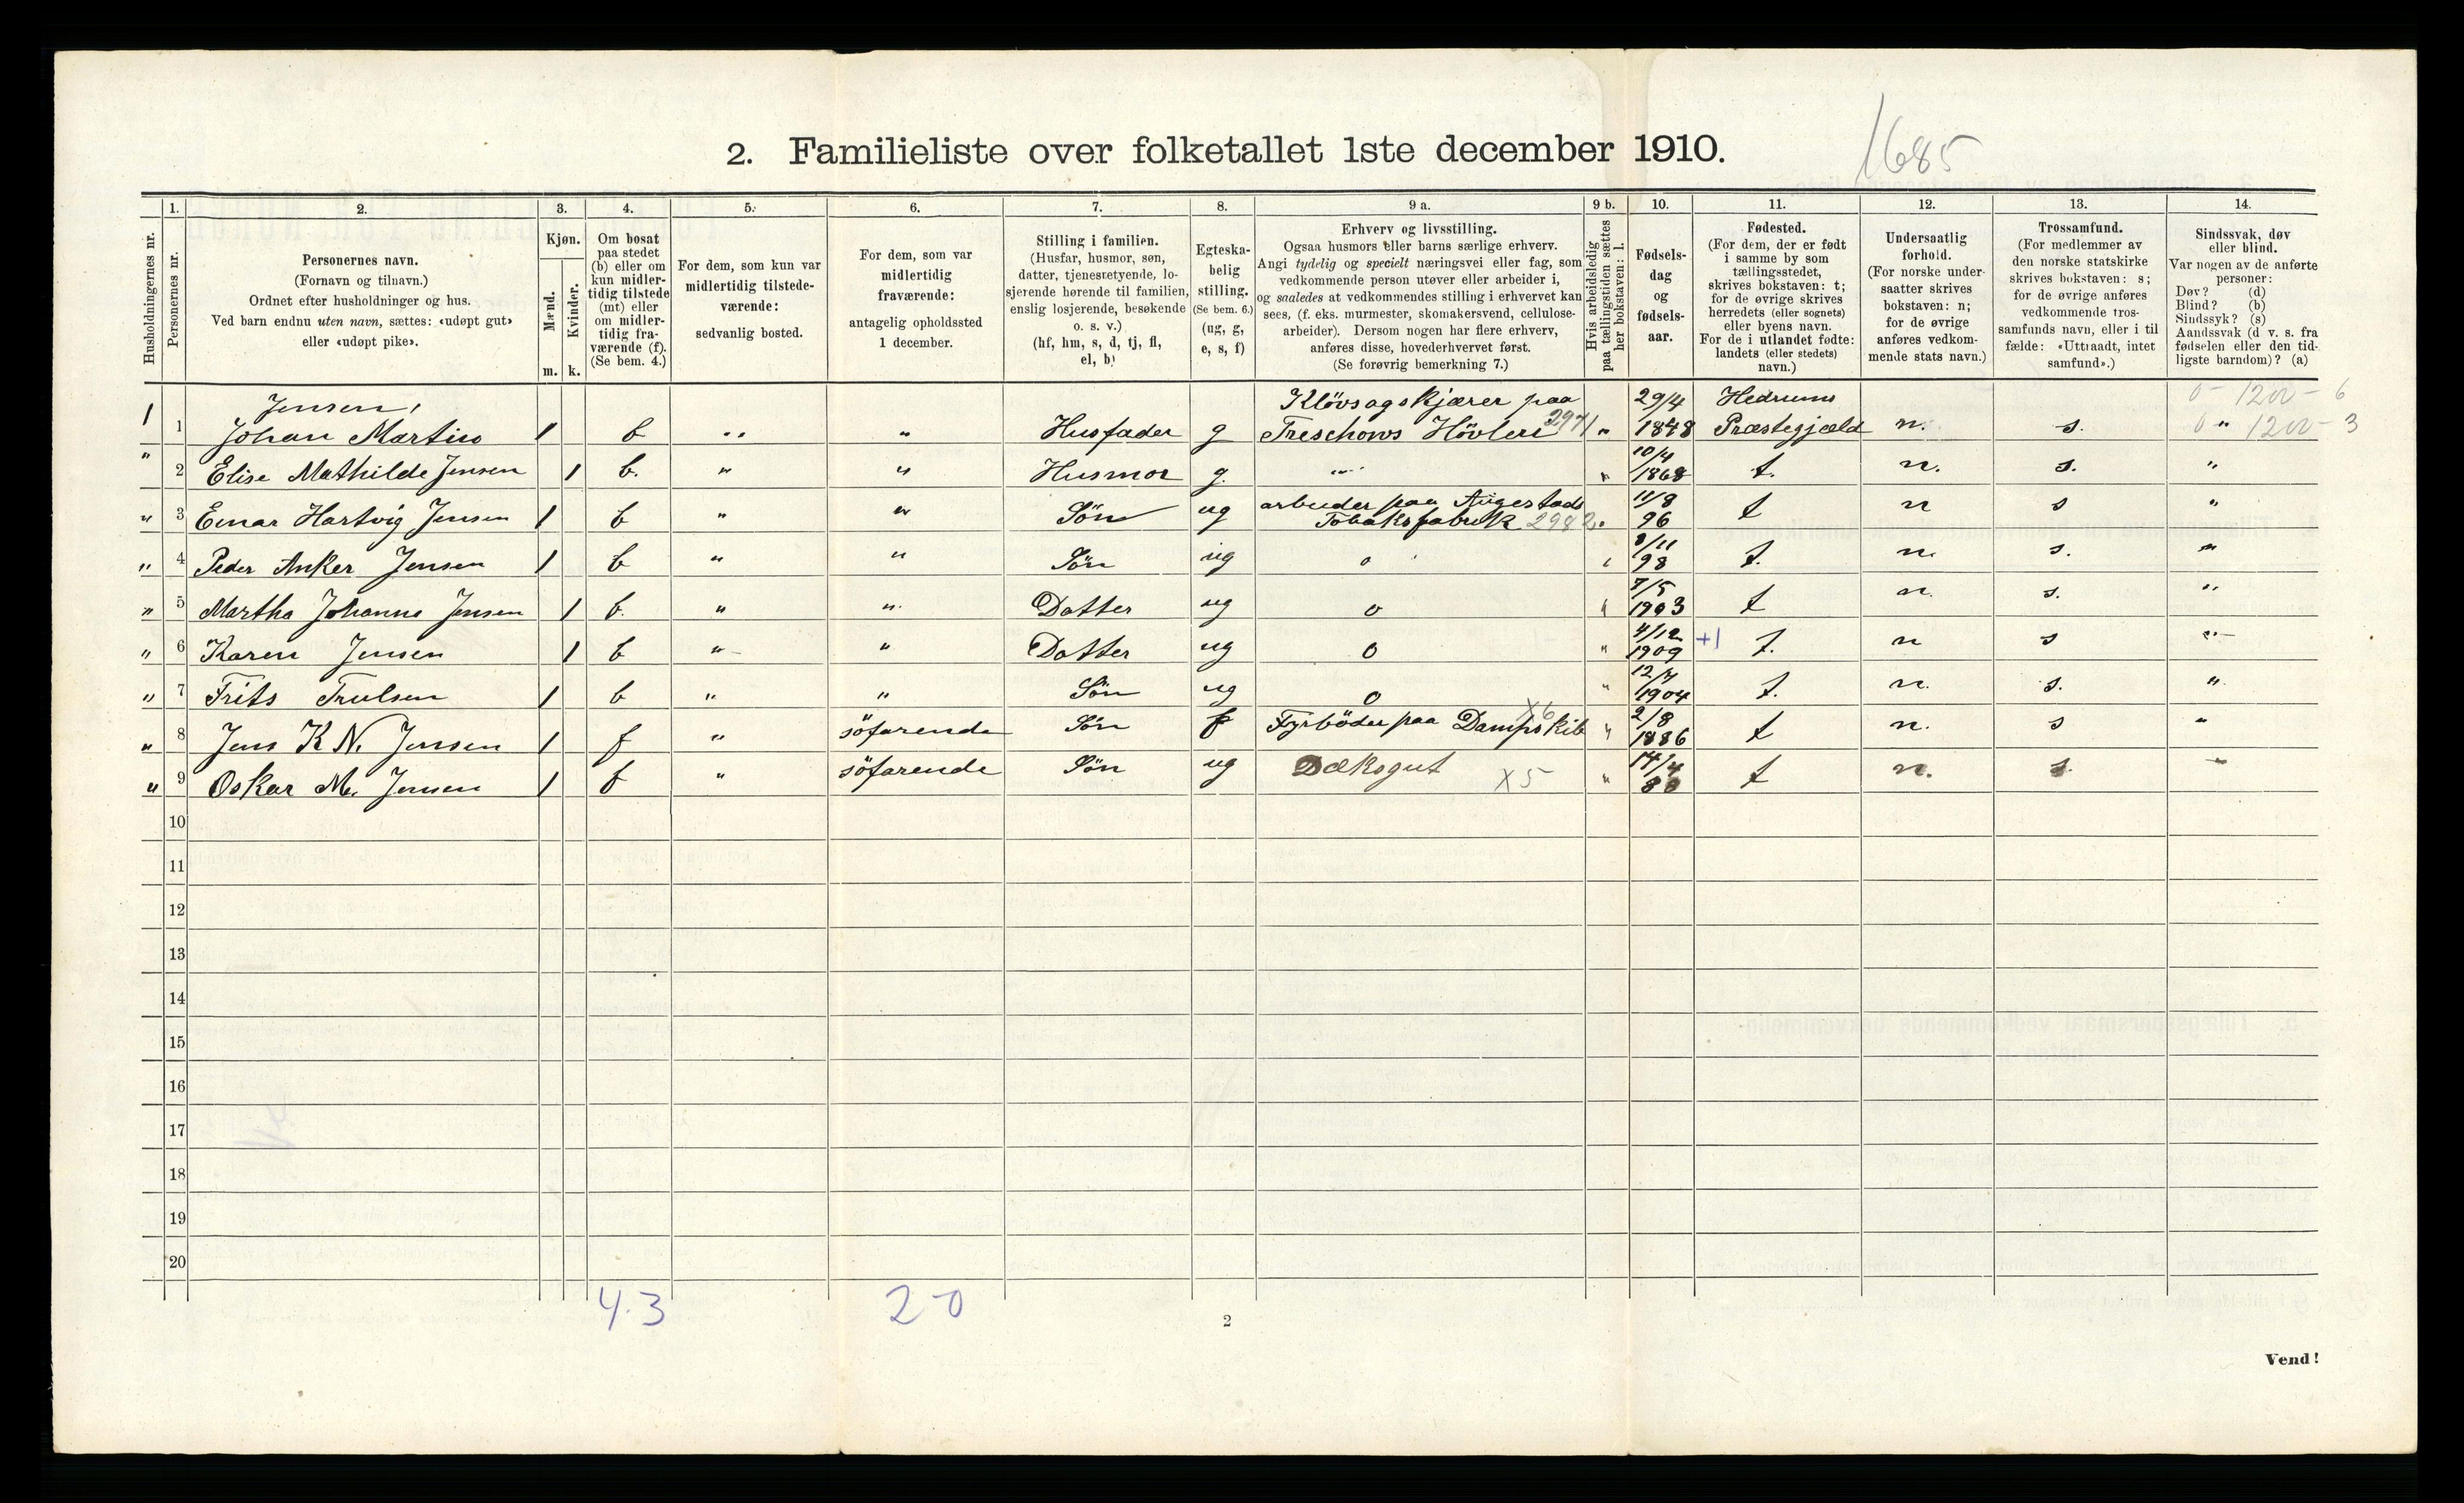 1685
2. Familieliste over folketallet 1ste december 1910.
1. 2. 3. 4. 5. 6. 7. 8. 9 a. 9 b. 10. 11. 12. 13. 14.
Husholdningernes nr.
Personernes nr.
Personernes navn.
(Fornavn og tilnavn.)
Ordnet efter husholdninger og hus.
Ved barn endnu uten navn, sættes: «udøpt gut»
eller «udøpt pike».
Kjøn.
Mænd.
m.
Kvinder.
k.
Om bosat
paa stedet
(b) eller om
kun midler-
tidig tilstede
(mt) eller
om midler-
tidig fra-
værende (f).
(Se bem. 4.)
For dem, som kun var
midlertidig tilstede-
værende:
sedvanlig bosted.
For dem, som var
midlertidig
fraværende:
antagelig opholdssted
1 december.
Stilling i familien.
(Husfar, husmor, søn,
datter, tjenestetyende, lo-
sjerende hørende til familien,
enslig losjerende, besøkende
o. s. v.)
(hf, hm, s, d, tj, fl,
el, b)
Egteska-
belig
stilling.
(Se bem. 6.)
(ug, g,
e, s, f)
Erhverv og livsstilling.
Ogsaa husmors eller barns særlige erhverv.
Angi tydelig og specielt næringsvei eller fag, som
vedkommende person utøver eller arbeider i,
og saaledes at vedkommendes stilling i erhvervet kan
sees, (f. eks. murmester, skomakersvend, cellulose-
arbeider). Dersom nogen har flere erhverv,
anføres disse, hovederhvervet først.
(Se forøvrig bemerkning 7.)
Hvis arbeidsledig
paa tællingstiden sættes
her bokstaven: l.
Fødsels-
dag
og
fødsels-
aar.
Fødested.
(For dem, der er født
i samme by som
tællingsstedet,
skrives bokstaven: t;
for de øvrige skrives
herredets (eller sognets)
eller byens navn.
For de i utlandet fødte:
landets (eller stedets)
navn.)
Undersaatlig
forhold.
(For norske under-
saatter skrives
bokstaven: n;
for de øvrige
anføres vedkom-
mende stats navn.)
Trossamfund.
(For medlemmer av
den norske statskirke
skrives bokstaven: s;
for de øvrige anføres
vedkommende tros-
samfunds navn, eller i til
fælde: «Uttraadt, intet
samfund».)
Sindssvak, døv
eller blind.
Var nogen av de anførte
personer:
Døv? (d)
Blind? (b)
Sindssyk? (s)
Aandssvak (d. v. s. fra
fødselen eller den tid-
ligste barndom)? (a)
Jensen, Klövsagskjærer paa 29/4 Hedrums 0 - 1200 - 6
1 1 Johan Martin 1 b " " Husfader g Treschows Hövleri 2971 " 1848 Præstegjæld n. s. 0 " 1200 - 3
" 2 Elise Mathilde Jensen 1 b. " " Husmor g. " " 10/4 1868 t. n. s. "
" 3 Einar Hartvig Jensen 1 b " " Sön ug arbeider paa Augestads Tobaksfabrik 2982 " 11/8 96 t n s "
" 4 Peder Anker Jensen 1 b " " Sön ug o 8/11 98 t. n. s. "
" 5 Martha Johanne Jensen 1 b. " " Datter ug o " 7/5 1903 t n. s. "
" 6 Karen Jensen 1 b " " Datter ug o " 4/12 1909 +1 t. n s "
" 7 Frits Trulsen 1 b " " Sön ug o " 12/7 1904 t. n. s. "
" 8 Jens K N. Jensen 1 f " söfarende Sön f Fyrböder paa Dampskib X6 " 2/8 1886 t n. s "
" 9 Oskar M. Jensen 1 f " söfarende Sön ug Dæksgut X5 " 14/4 t n. s. "
10
11
12
13
14
15
16
17
18
19
20
4.3 2-0
2
Vend!